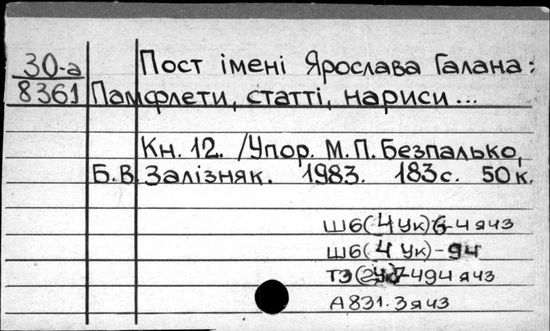 30-а
8361
Пост імені Ярослава Галана:
Памфлети, статті, нариси...
Кн. 12. /Упор. М.П. Безпалько,
Б.В. Залізняк. 1983. 183с. 50к.
Ш6(4Ук)6-4 яч3
Ш6(4Ук)-94
494 яч3
А831.3яч3